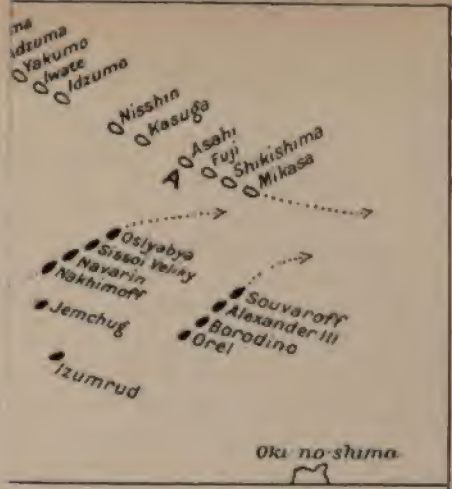 ma
dzuma
Yakumo
Iwate
Idzumo
Nisshin
Kasuga
Asahi
Fuji
Shikishima
Mikasa
A
Oslyabya
Sissoi Veliky
Navarin
Nakhimoff
Jemchug
Izumrud
Souvaroff
Alexander III
Borodino
Orel
Oki-no-shima